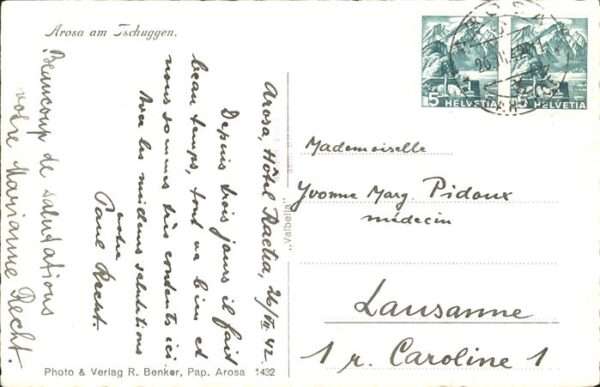 Arosa am Tschuggen.
Arosa, Hôtel Raetia, 26/VII 42.
Depuis trois jours il fait
beau temps, tout va bien et
nous sommes très contents ici.
Avec les meilleurs salutations
votre
Paul Recht.
Beaucoup de salutations
votre Marianne Recht.
Photo & Verlag R. Benker, Pap. Arosa 1432
"Valbella"
5 HELVETIA
5 HELVETIA
Mademoiselle
Yvonne Marg. Pidoux
médecin
Lausanne
1 r. Caroline 1